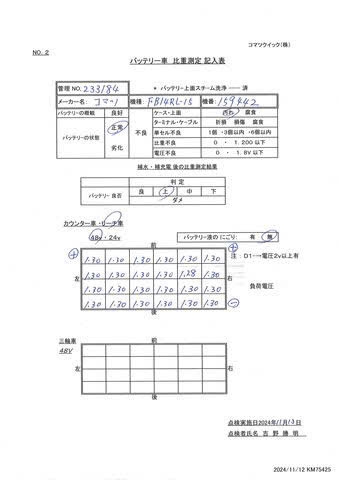 コマツクイック(株)
NO. 2
バッテリー車 比重測定 記入表
管理NO. 233184 * バッテリー上面スチーム洗浄 ―― 済
メーカー名: コマツ 機種: FB14RL-15 機番: 159442
バッテリーの概観 良好 不良 ケース・上面 汚れ 腐食
バッテリーの状態 正常 ターミナル・ケーブル 折損 損傷 腐食
単セル不良 1個 ・3個以内 ・6個以内
劣化 比重不良 0 ・ 1. 200以下
電圧不良 0 ・ 1. 8V以下
補水・補充電 後の比重測定結果
バッテリー 良否 判 定
良 上 中 下
ダメ
カウンター車 ・リーチ車
48v ・ 24v バッテリー液の にごり: 有 無
前
+ +
左 1.30 1.30 1.30 1.30 1.30 1.30 右
1.30 1.30 1.30 1.30 1.28 1.30
1.30 1.30 1.30 1.30 1.30 1.30
1.30 1.30 1.30 1.30 1.30 1.30
後
−
注 : D1-→電圧2v以上有
負荷電圧
三輪車
48V
前
左 右
後
点検実施日2024年11月13日
点検者氏名 吉 野 勝 明
2024/11/12 KM75425